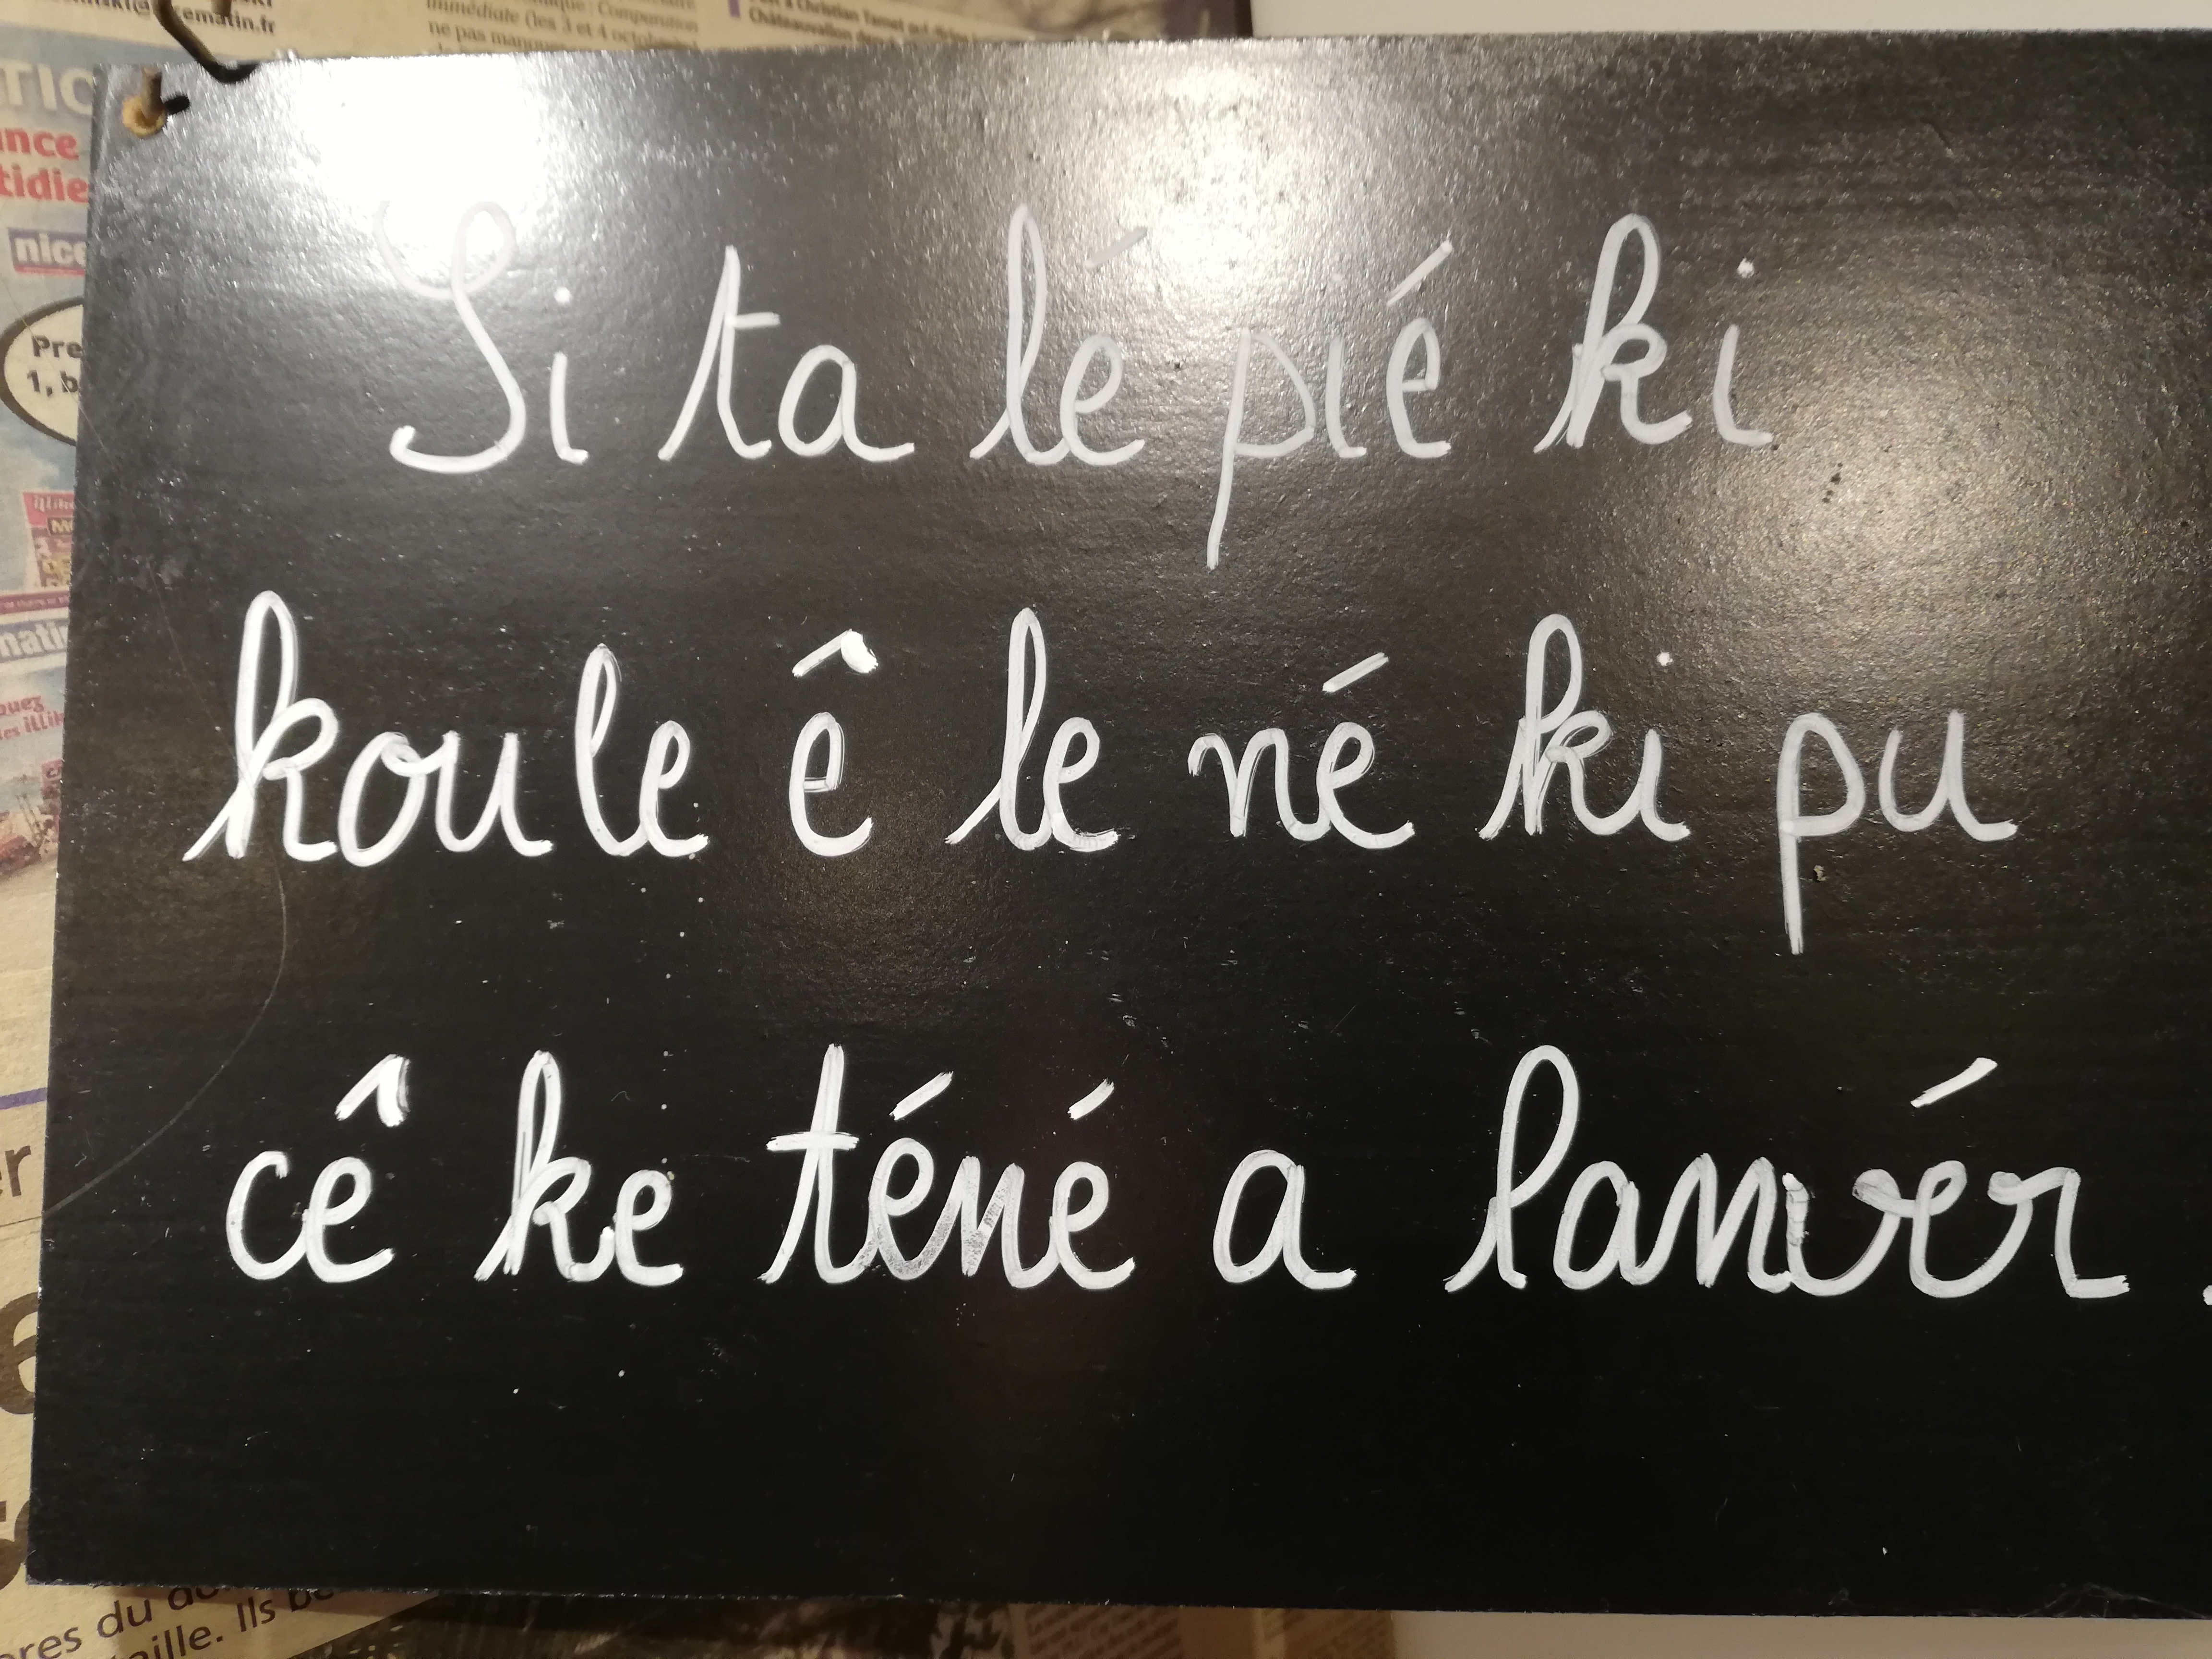 ematin.fr
immédiate (les 3 et 4 octobre)
ne pas manqu
TIC
ance
tidie
nice
Pre
1, b
matin
Si ta lé pié ki
koule ê le né ki pu
cê ke téné a lanvér.
er
res du do
aille. Ils be